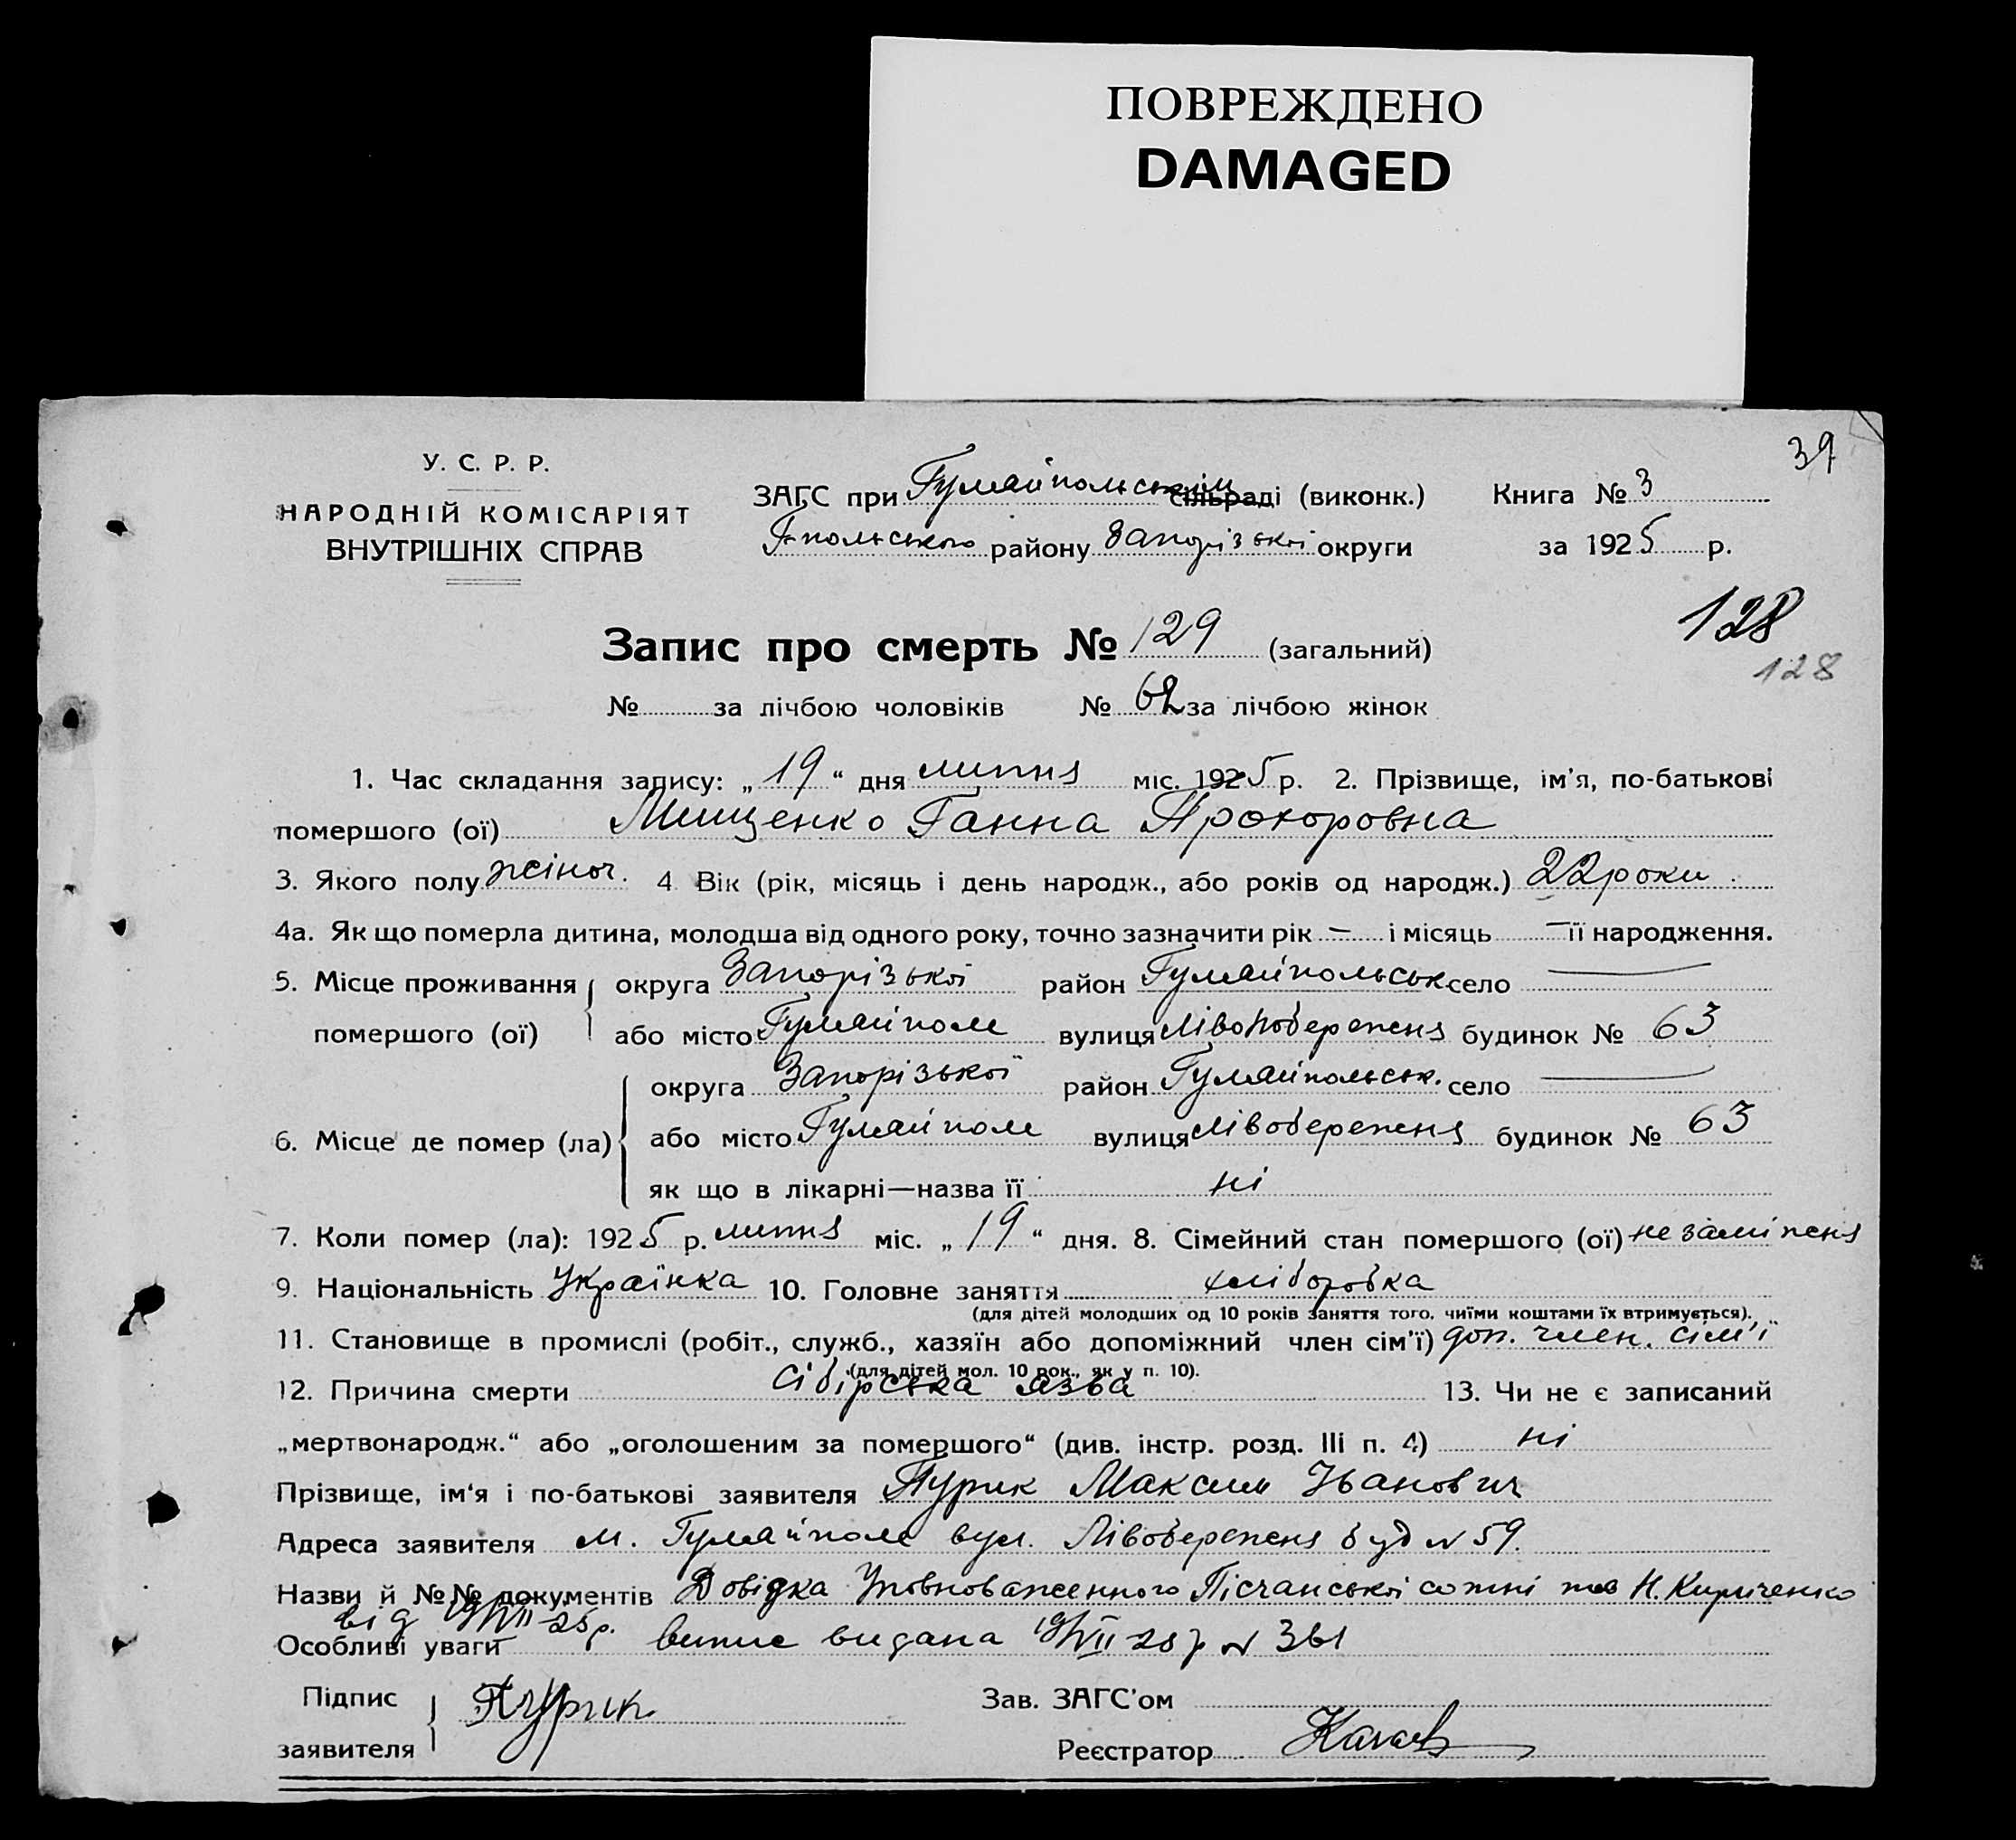 ПОВРЕЖДЕНО
DAMAGED
39
У. С. Р. Р.
НАРОДНІЙ КОМІСАРІЯТ
ВНУТРІШНІХ СПРАВ
ЗАГС при Гуляйпольським сільраді (виконк.) Книга № 3
Г-польського району Запорізької округи за 1925 р.
128
128
Запис про смерть № 129 (загальний)
№ за лічбою чоловіків № 62 за лічбою жінок
1. Час складання запису: „19“ дня липня міс. 1925 р. 2. Прізвище, ім’я, по-батькові
помершого (ої) Мищенко Ганна Прохоровна
3. Якого полу жіноч. 4 Вік (рік, місяць і день народж., або років од народж.) 22 роки
4а. Як що померла дитина, молодша від одного року, точно зазначити рік — і місяць — її народження.
5. Місце проживання округа Запорізької район Гуляйпольськ. село —
помершого (ої) або місто Гуляйполе вулиця Лівобережня будинок № 63
округа Запорізької район Гуляйпольськ. село —
6. Місце де помер (ла) або місто Гуляйполе вулиця Лівобережня будинок № 63
як що в лікарні—назва її ні
7. Коли помер (ла): 1925 р. липня міс. „19“ дня. 8. Сімейний стан помершого (ої) незаміжня
9. Національність Українка 10. Головне заняття хліборобка
(для дітей молодших од 10 років заняття того, чиїми коштами їх втримується).
11. Становище в промислі (робіт., служб., хазяїн або допоміжний член сім’ї) доп. член. сім'ї
(для дітей мол. 10 рок., як у п. 10).
12. Причина смерти Сібірська язва 13. Чи не є записаний
„мертвонародж.“ або „оголошеним за помершого“ (див. інстр. розд. III п. 4) ні
Прізвище, ім‘я і по-батькові заявителя Пурик Максим Іванович
Адреса заявителя м. Гуляйполе вул. Лівобережня буд N 59.
Назви й №№ документів Довідка Уповноваженного Пісчанської сотні тов Н. Кириченко
від 19/VII-25 р.
Особливі уваги випис видана 19/VII-25 р N 361
Підпис Пурик Зав. ЗАГС’ом
заявителя Реєстратор